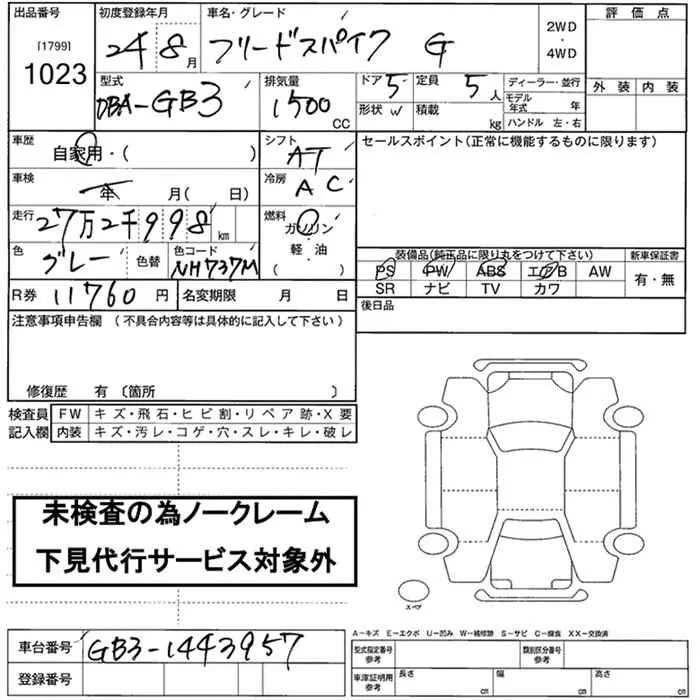 出品番号 初度登録年月 車名・グレード 2WD・4WD 評価点
[1799]
1023
24 8月 フリードスパイク G
外装 内装
型式 排気量 ドア 定員 ディーラー・並行
DBA-GB3 1500CC 5 5人 モデル年式 年
形状 W 積載 kg ハンドル 左・右
車歴 自家用・( )
シフト AT
セールスポイント(正常に機能するものに限ります)
車検 年 月( 日)
冷房 AC
走行 27万2千998km
燃料 ガソリン 軽・油 ( )
色 グレー 色替 色コード NH737M
装備品(純正品に限り丸をつけて下さい) 新車保証書
PS PW ABS エアB AW 有・無
SR ナビ TV カワ
R券 11760円 名変期限 月 日
後日品
注意事項申告欄 (不具合内容等は具体的に記入して下さい)
修復歴 有〔箇所 〕
検査員記入欄
FW キズ・飛石・ヒビ割・リペア跡・X要
内装 キズ・汚レ・コゲ・穴・スレ・キレ・破レ
未検査の為ノークレーム
下見代行サービス対象外
スペア
A-キズ E-エクボ U-凹み W-補修跡 S-サビ C-腐食 XX-交換済
車台番号 GB3-1443957
登録番号
型式指定番号参考 類別区分番号
車庫証明用参考 長さ cm 幅 cm 高さ cm